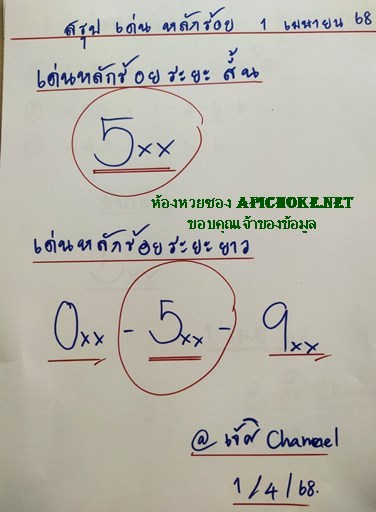 สรุป เด่น หลักร้อย 1 เมษายน 68
เด่นหลักร้อยระยะ สั้น
5xx
ห้องหวยซอง APICHOKE.NET
ขอบคุณเจ้าของข้อมูล
เด่นหลักร้อยระยะยาว
0xx - 5xx - 9xx
@ Chanael
1/4/68.